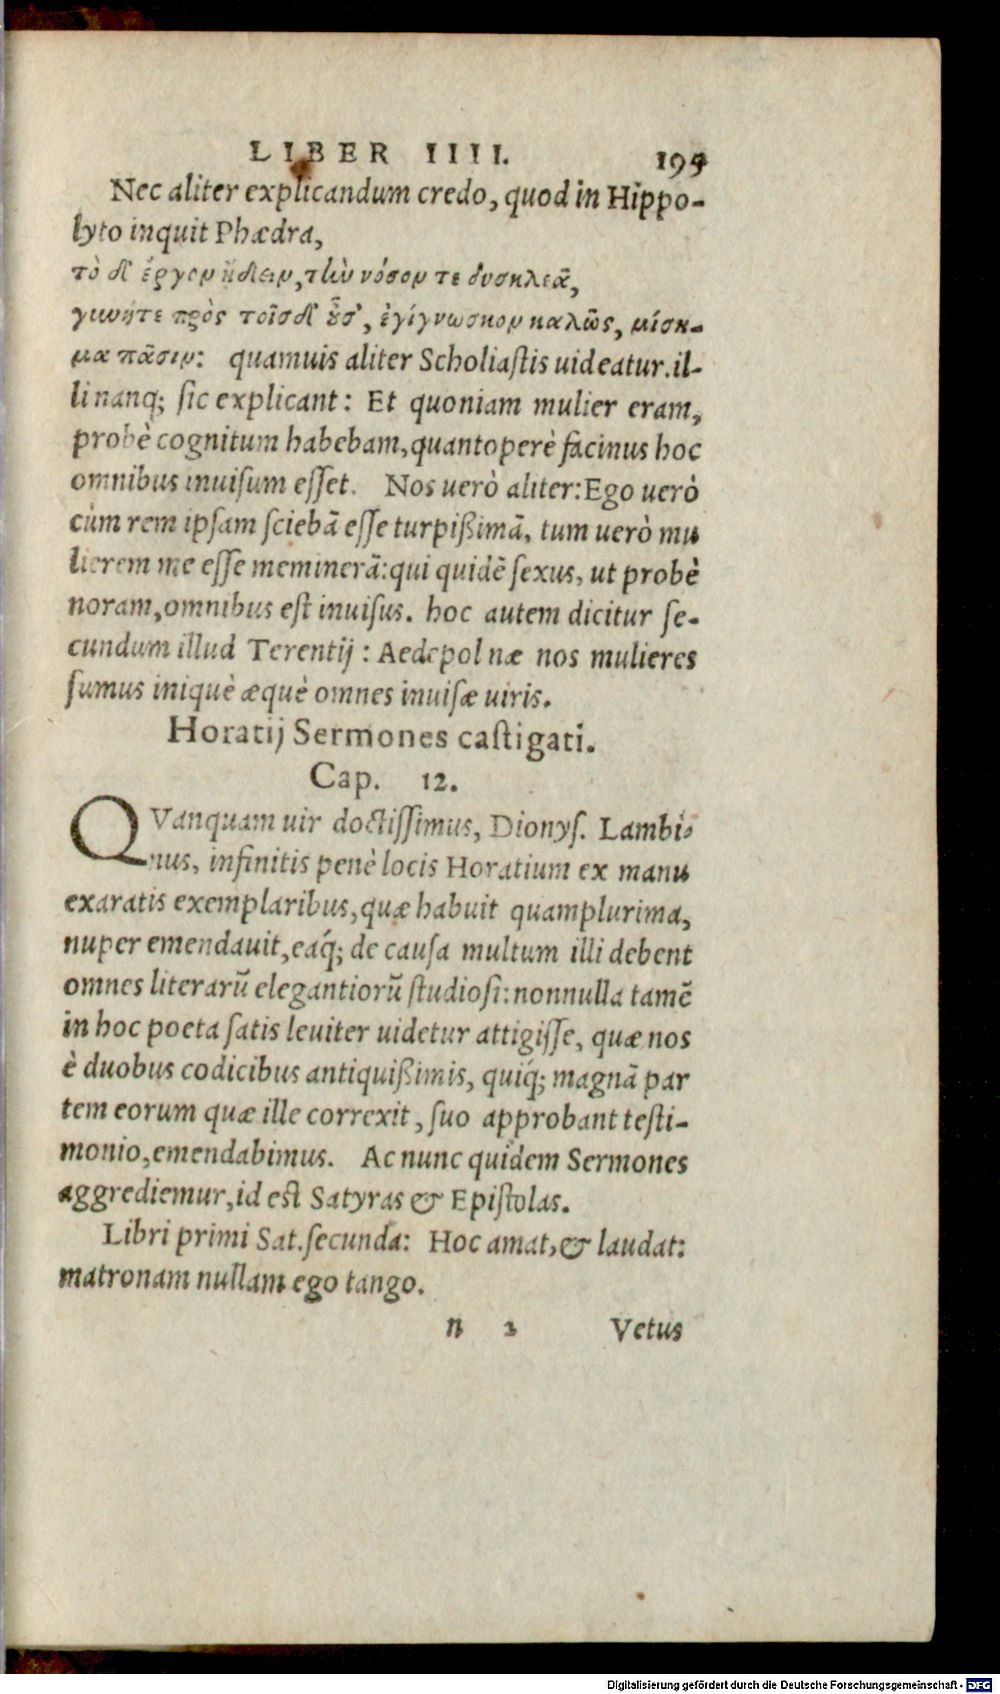 LIBER IIII. 195
Nec aliter explicandum credo, quod in Hippo-
lyto inquit Phædra,
τὸ δ' ἔργον ᾔδειν, τὴν νόσον τε δυσκλεᾶ,
γυνή τε πρὸς τοῖσδ' οὖσ', ἐγίγνωσκον καλῶς, μίση-
μα πᾶσιν: quamuis aliter Scholiastis uideatur. il-
li nanq; sic explicant: Et quoniam mulier eram,
probè cognitum habebam, quantoperè facinus hoc
omnibus inuisum esset. Nos uerò aliter: Ego uerò
cùm rem ipsam sciebã esse turpißimã, tum uerò mu
lierem me esse memineră: qui quidẽ sexus, ut probè
noram, omnibus est inuisus. hoc autem dicitur se-
cundum illud Terentij: Aedepol næ nos mulieres
sumus iniquè æquè omnes inuisæ uiris.
Horatij Sermones castigati.
Cap. 12.
QVanquam uir doctissimus, Dionys. Lambi-
nus, infinitis penè locis Horatium ex manu
exaratis exemplaribus, quæ habuit quamplurima,
nuper emendauit, eaq́; de causa multum illi debent
omnes literarũ elegantiorũ studiosi: nonnulla tamẽ
in hoc poeta satis leuiter uidetur attigisse, quæ nos
è duobus codicibus antiquißimis, quiq́; magnã par
tem eorum quæ ille correxit, suo approbant testi-
monio, emendabimus. Ac nunc quidem Sermones
aggrediemur, id est Satyras & Epistolas.
Libri primi Sat. secunda: Hoc amat, & laudat:
matronam nullam ego tango.
n 2 Vetus
Digitalisierung gefördert durch die Deutsche Forschungsgemeinschaft - DFG